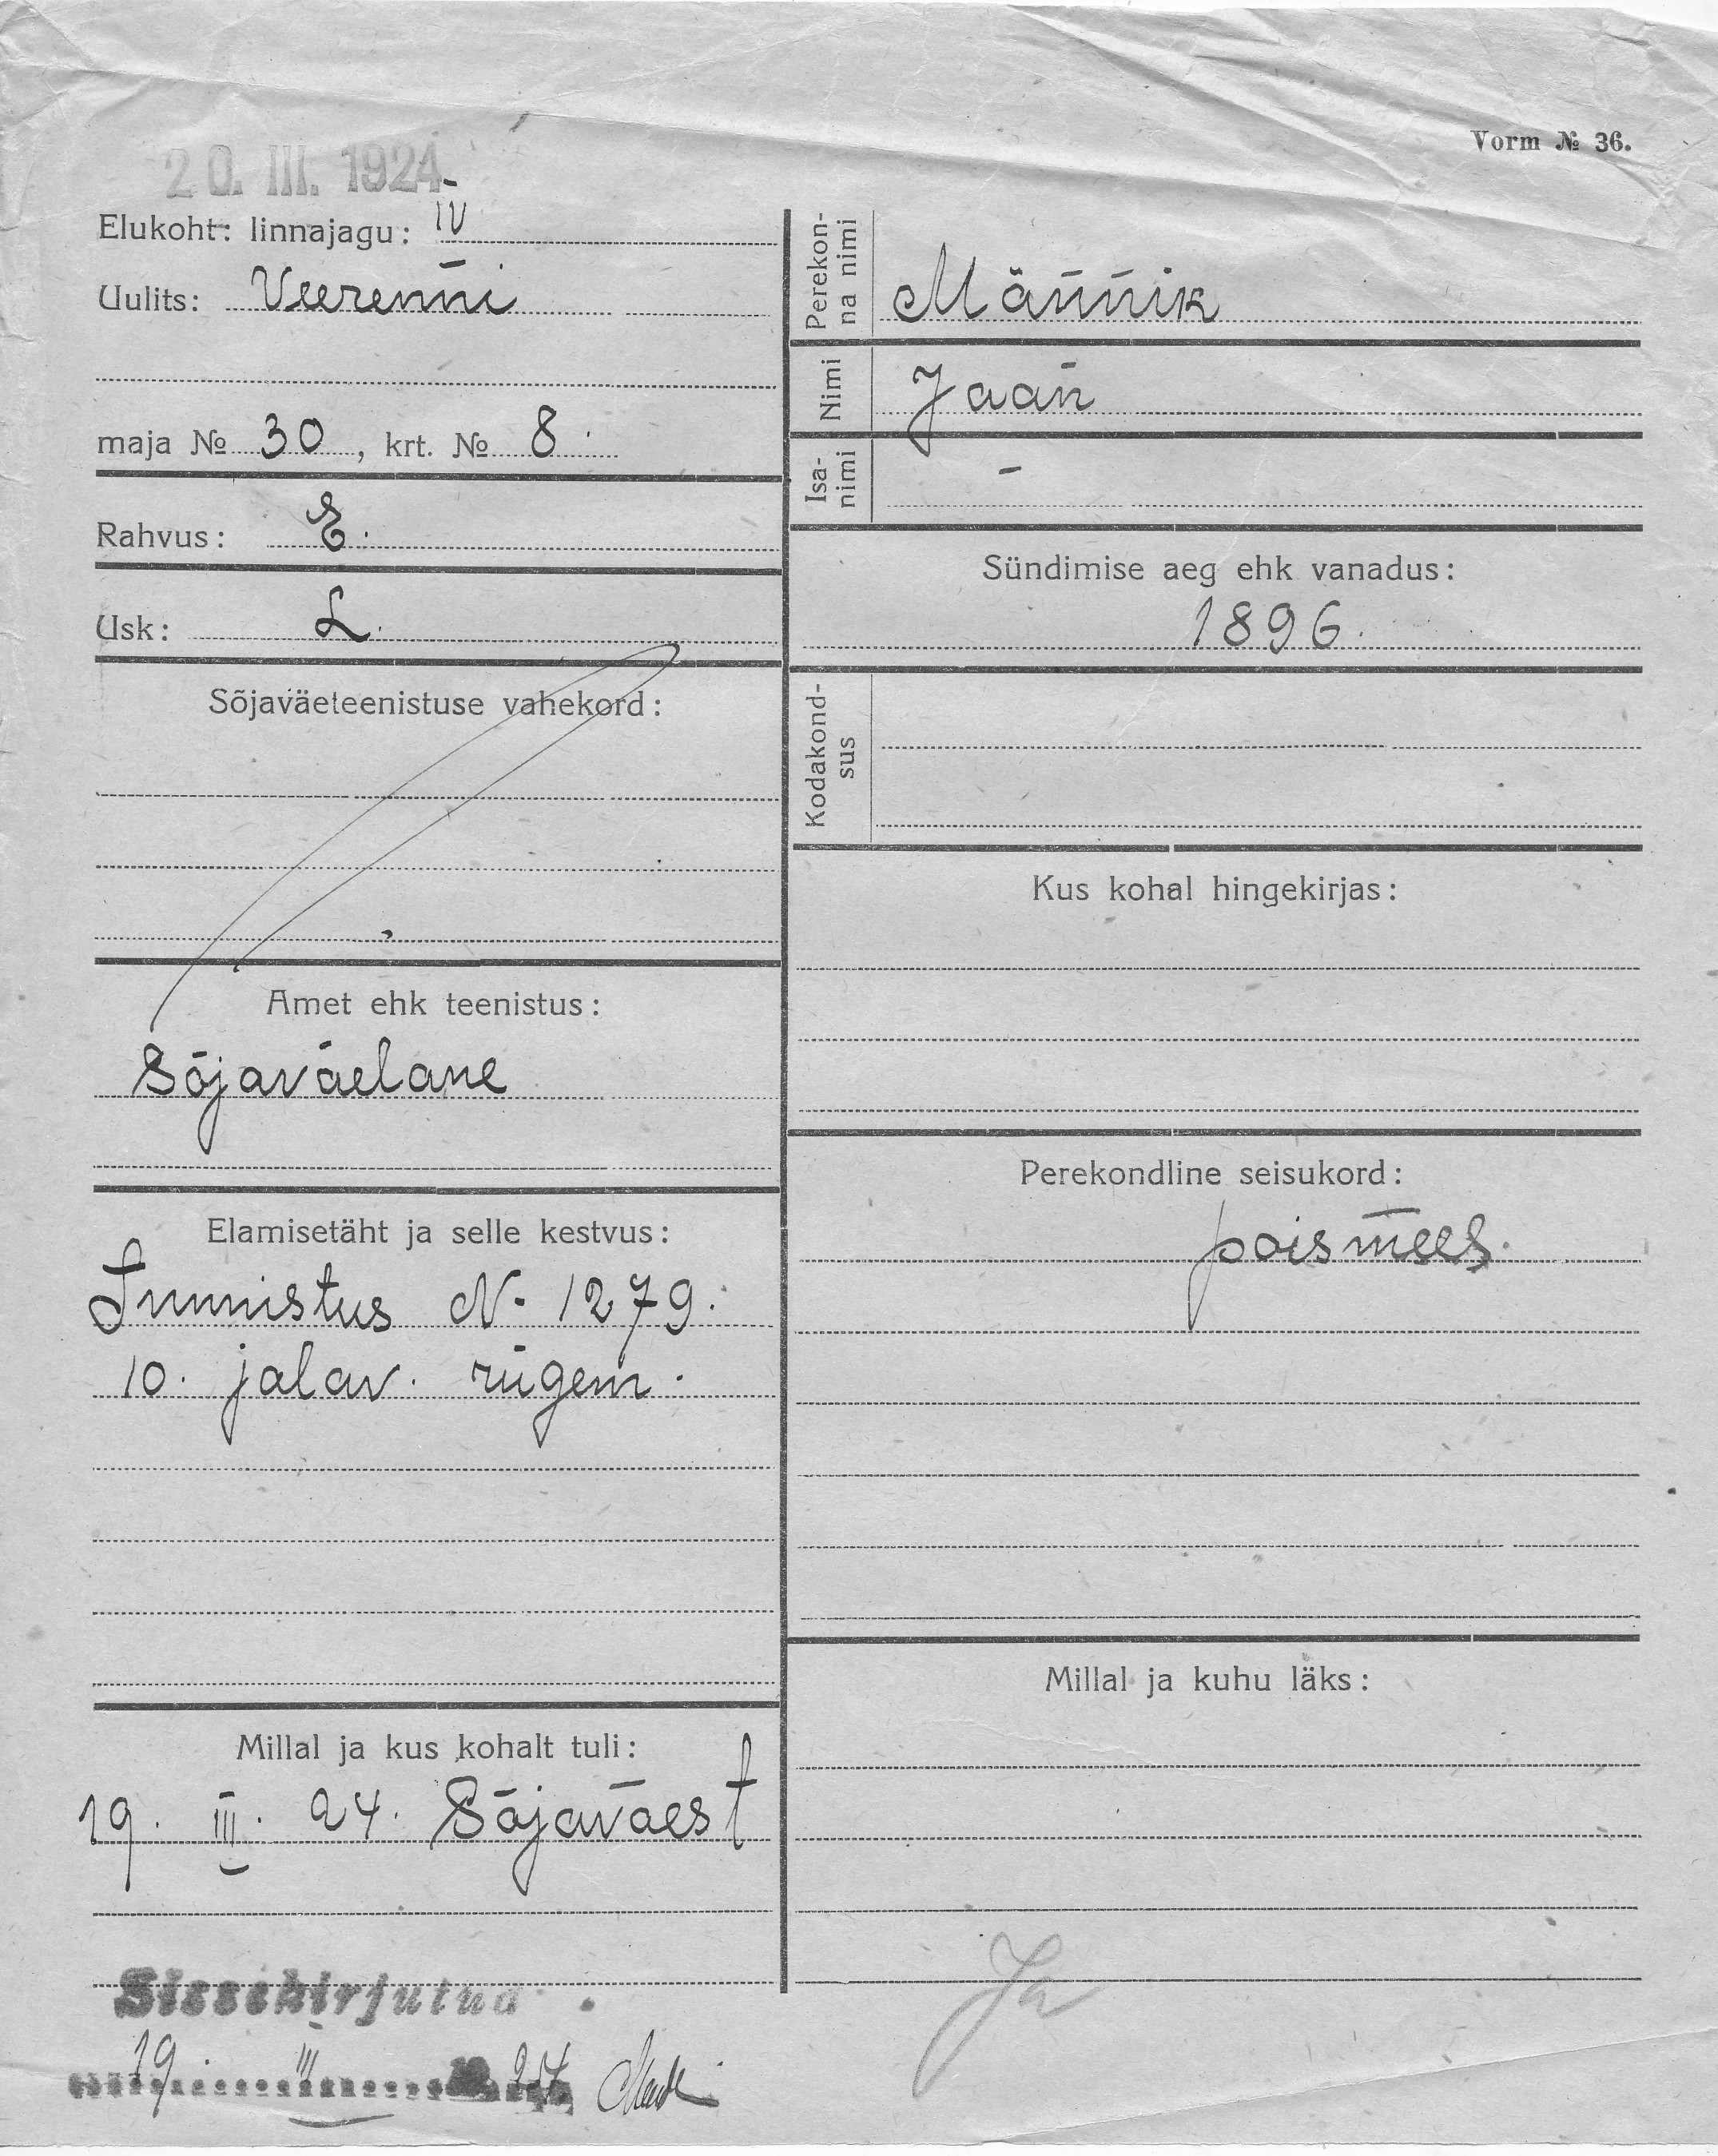 Vorm № 36.
20. III. 1924
Elukoht: linnajagu: IV
Uulits: Veerenni
maja № 30, krt. № 8.
Rahvus: E.
Usk: L.
Sõjaväeteenistuse vahekord:
Amet ehk teenistus:
Sõjaväelane
Elamisetäht ja selle kestvus:
Tunnistus N- 1279.
10. jalav. rügem.
Millal ja kus kohalt tuli:
19. III. 24. Sõjaväest
Sissekirjutud
19. III 1924
Perekon-
na nimi
Männik
Nimi Jaan
Isa-
nimi
-
Sündimise aeg ehk vanadus:
1896.
Kodakond-
sus
Kus kohal hingekirjas:
Perekondline seisukord:
poismees.
Millal ja kuhu läks:
Ja